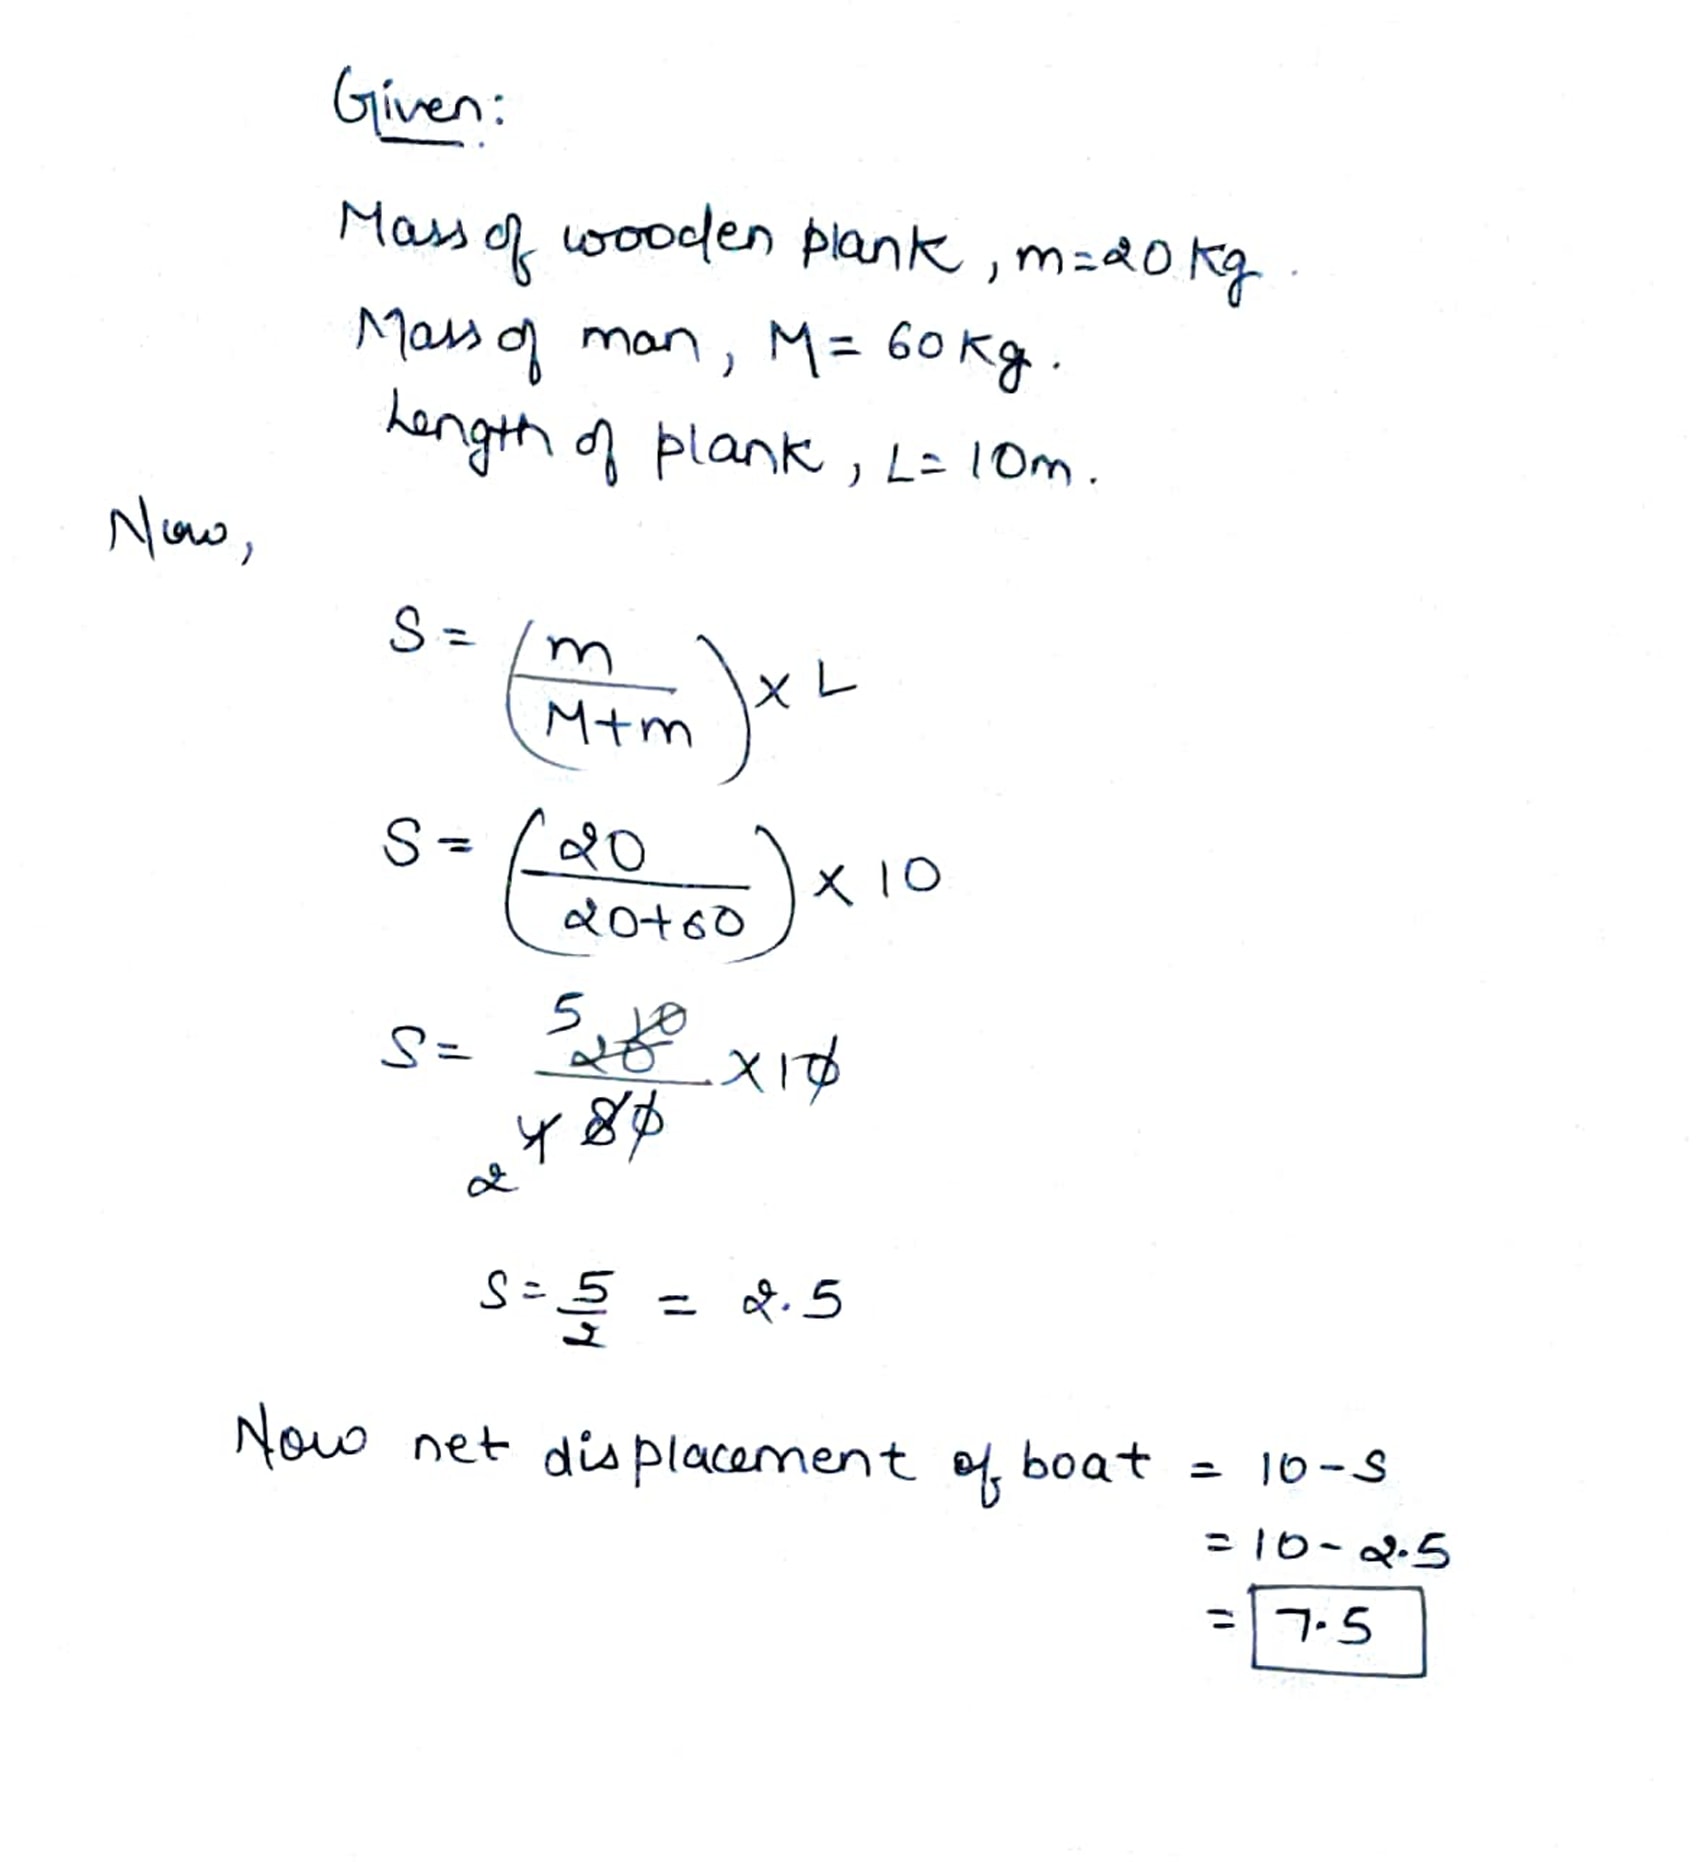 Given:
Mass of wooden plank, m=20 kg.
Mass of man, M = 60 kg.
Length of plank, L = 10m.
Now,
S = (m / M+m) × L
S = (20 / 20+60) × 10
S = 5 10 20 / 2 4 80 × 10
S = 5/2 = 2.5
Now net displacement of boat = 10-S
= 10 - 2.5
= 7.5